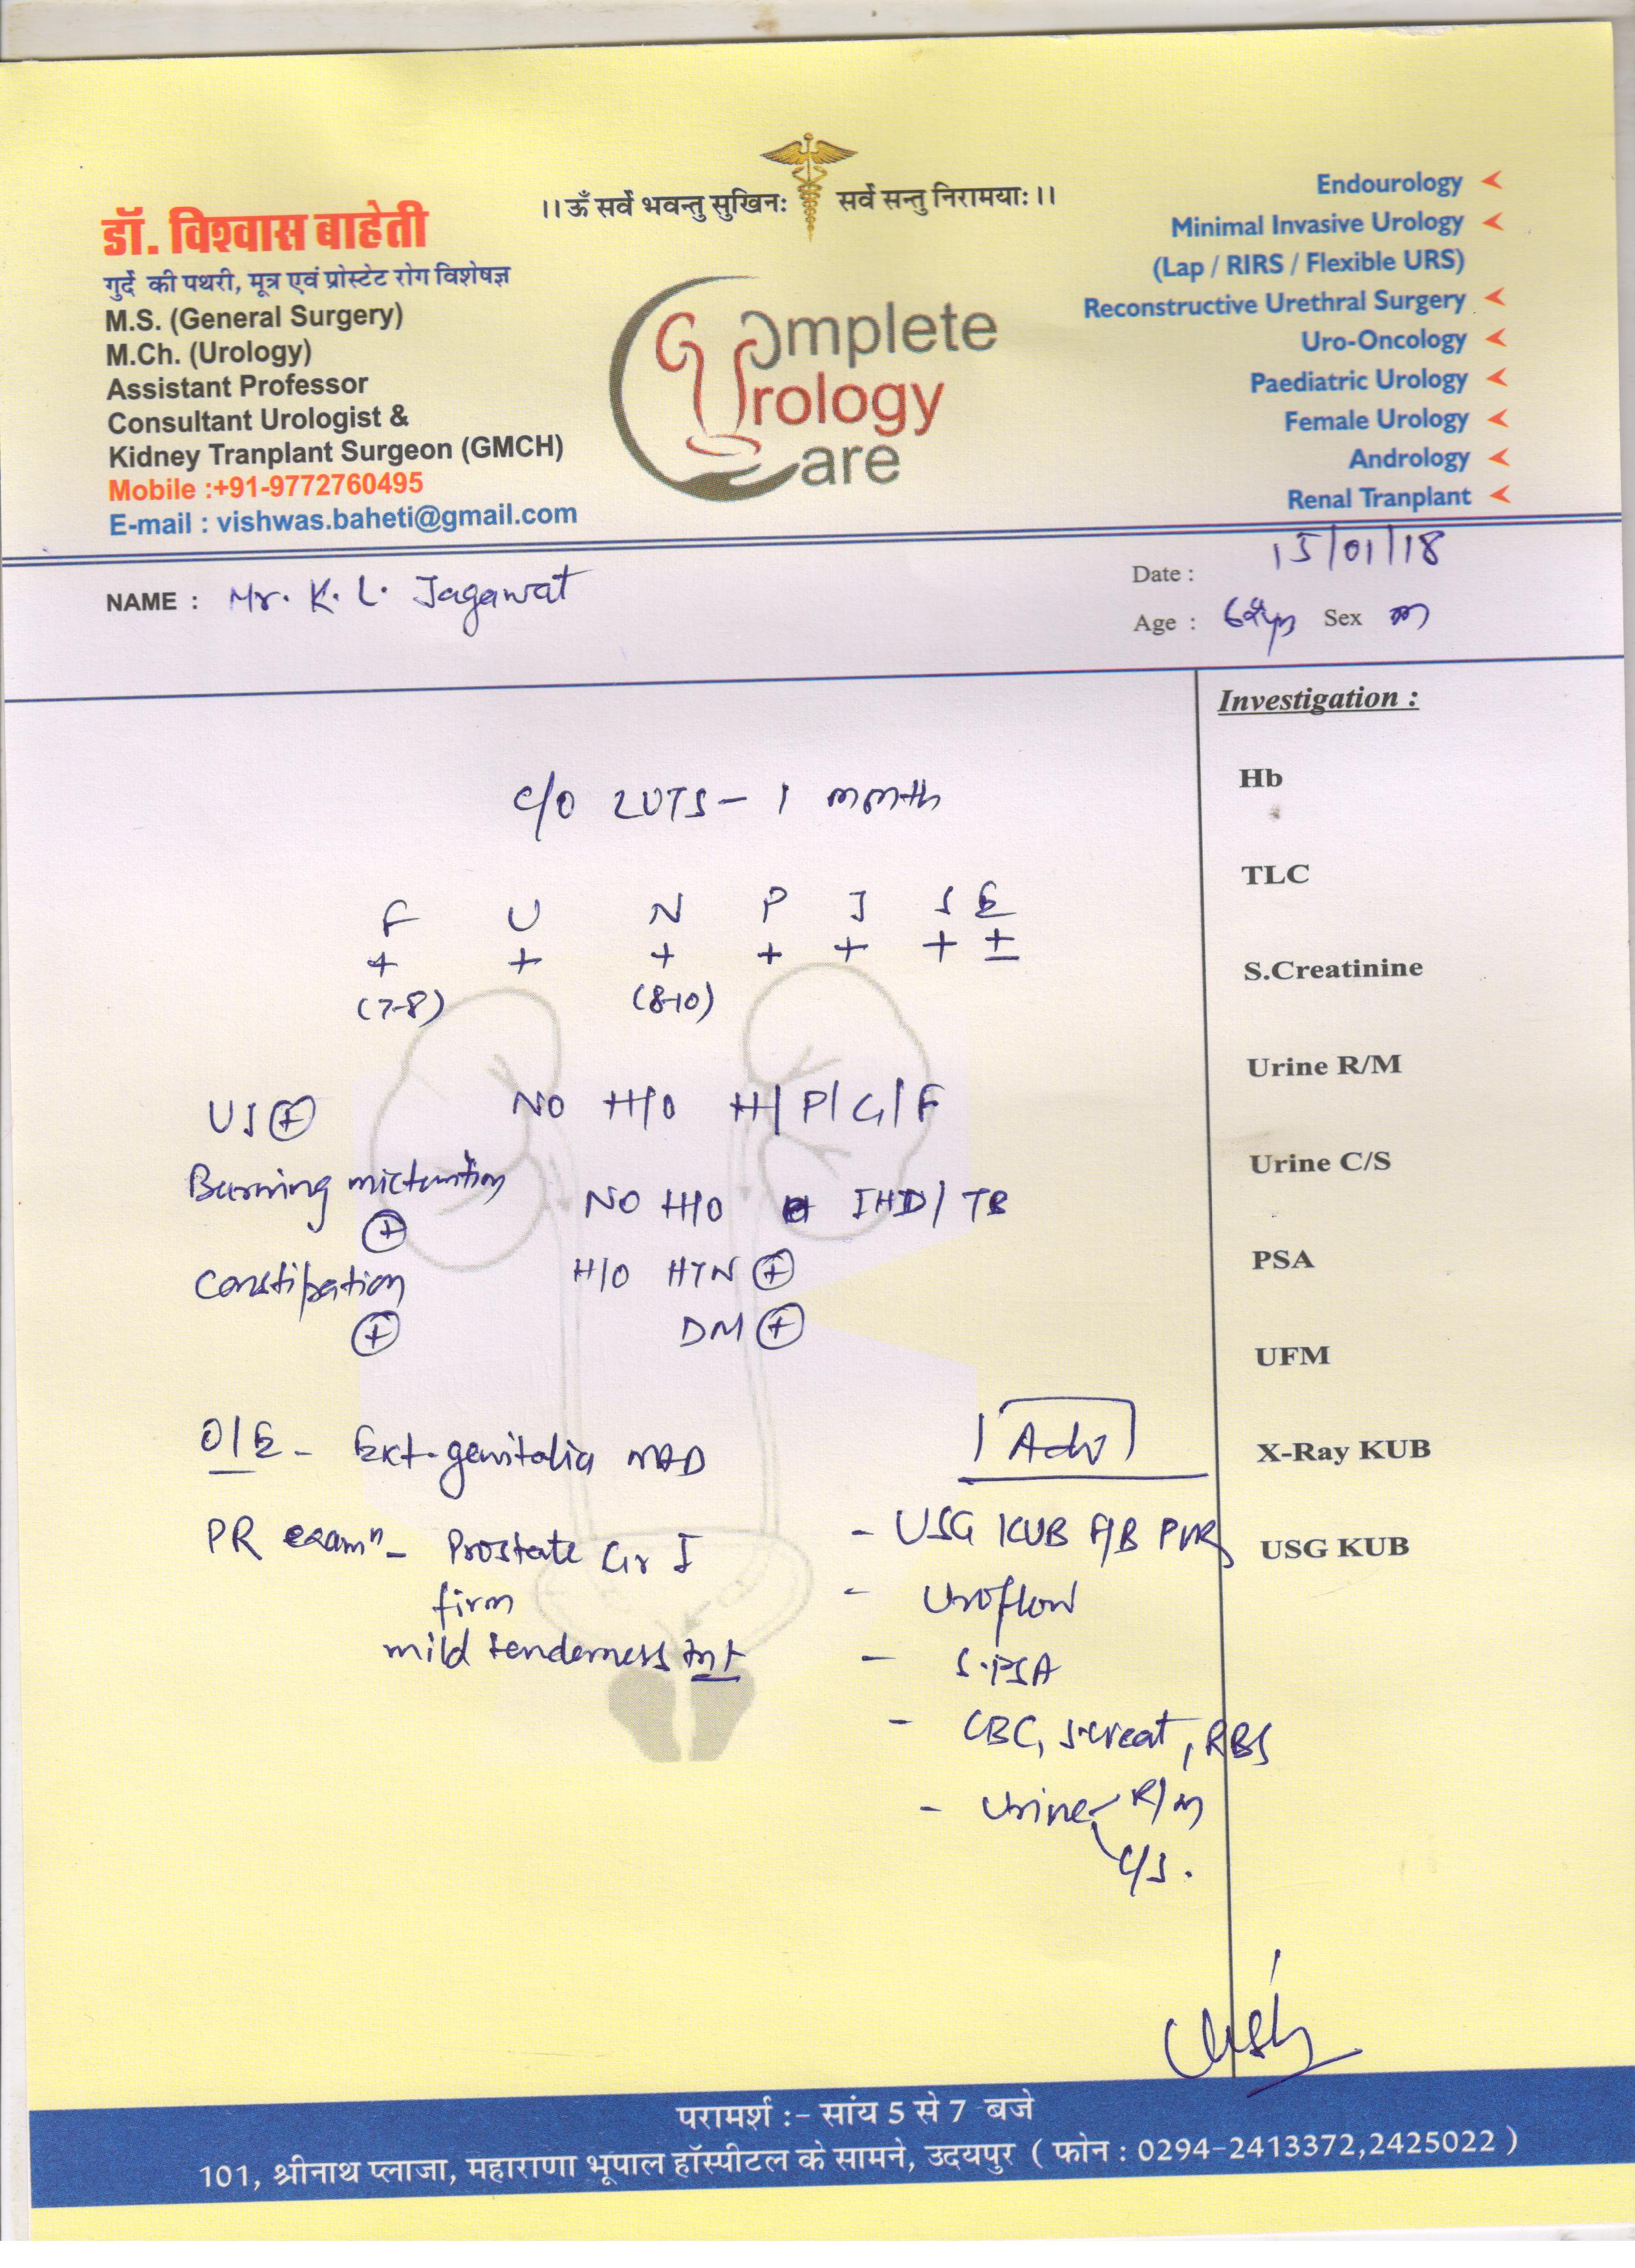 ।। ॐ सर्वे भवन्तु सुखिनः सर्वे सन्तु निरामयाः ।।
डॉ. विश्वास बाहेती
गुर्दे की पथरी, मूत्र एवं प्रोस्टेट रोग विशेषज्ञ
M.S. (General Surgery)
M.Ch. (Urology)
Assistant Professor
Consultant Urologist &
Kidney Tranplant Surgeon (GMCH)
Mobile :+91-9772760495
E-mail : vishwas.baheti@gmail.com
Complete
Urology
Care
Endourology
Minimal Invasive Urology
(Lap / RIRS / Flexible URS)
Reconstructive Urethral Surgery
Uro-Oncology
Paediatric Urology
Female Urology
Andrology
Renal Tranplant
NAME : Mr. K. L. Jagawat
Date : 15/01/18
Age : Sex m
c/o LUTS - 1 month
F U N P I S E
+ + + + + + ±
(7-8) (8-10)
UI ⊕ NO H/O H/P/G/F
Burning micturition ⊕
NO H/O IHD/ TB
Constipation ⊕
H/O HTN ⊕
DM ⊕
O/E - Ext. genitalia NAD
PR examn - Prostate Gr I
firm
mild tenderness
Adv
- USG KUB PVR
- Uroflow
- S.PSA
- CBC, S.creat, RBS
- Urine R/M
C/S.
Investigation :
Hb
TLC
S.Creatinine
Urine R/M
Urine C/S
PSA
UFM
X-Ray KUB
USG KUB
परामर्श :- सांय 5 से 7 बजे
101, श्रीनाथ प्लाजा, महाराणा भूपाल हॉस्पीटल के सामने, उदयपुर ( फोन : 0294-2413372,2425022 )